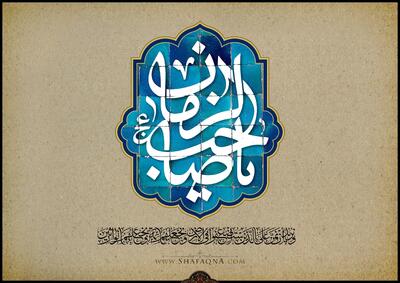 یا صاحب الزمان
عج
ونرید ان نمن علی الذین استضعفوا فی الارض ونجعلهم ائمة ونجعلهم الوارثین
WWW.SHAFAQNA.COM